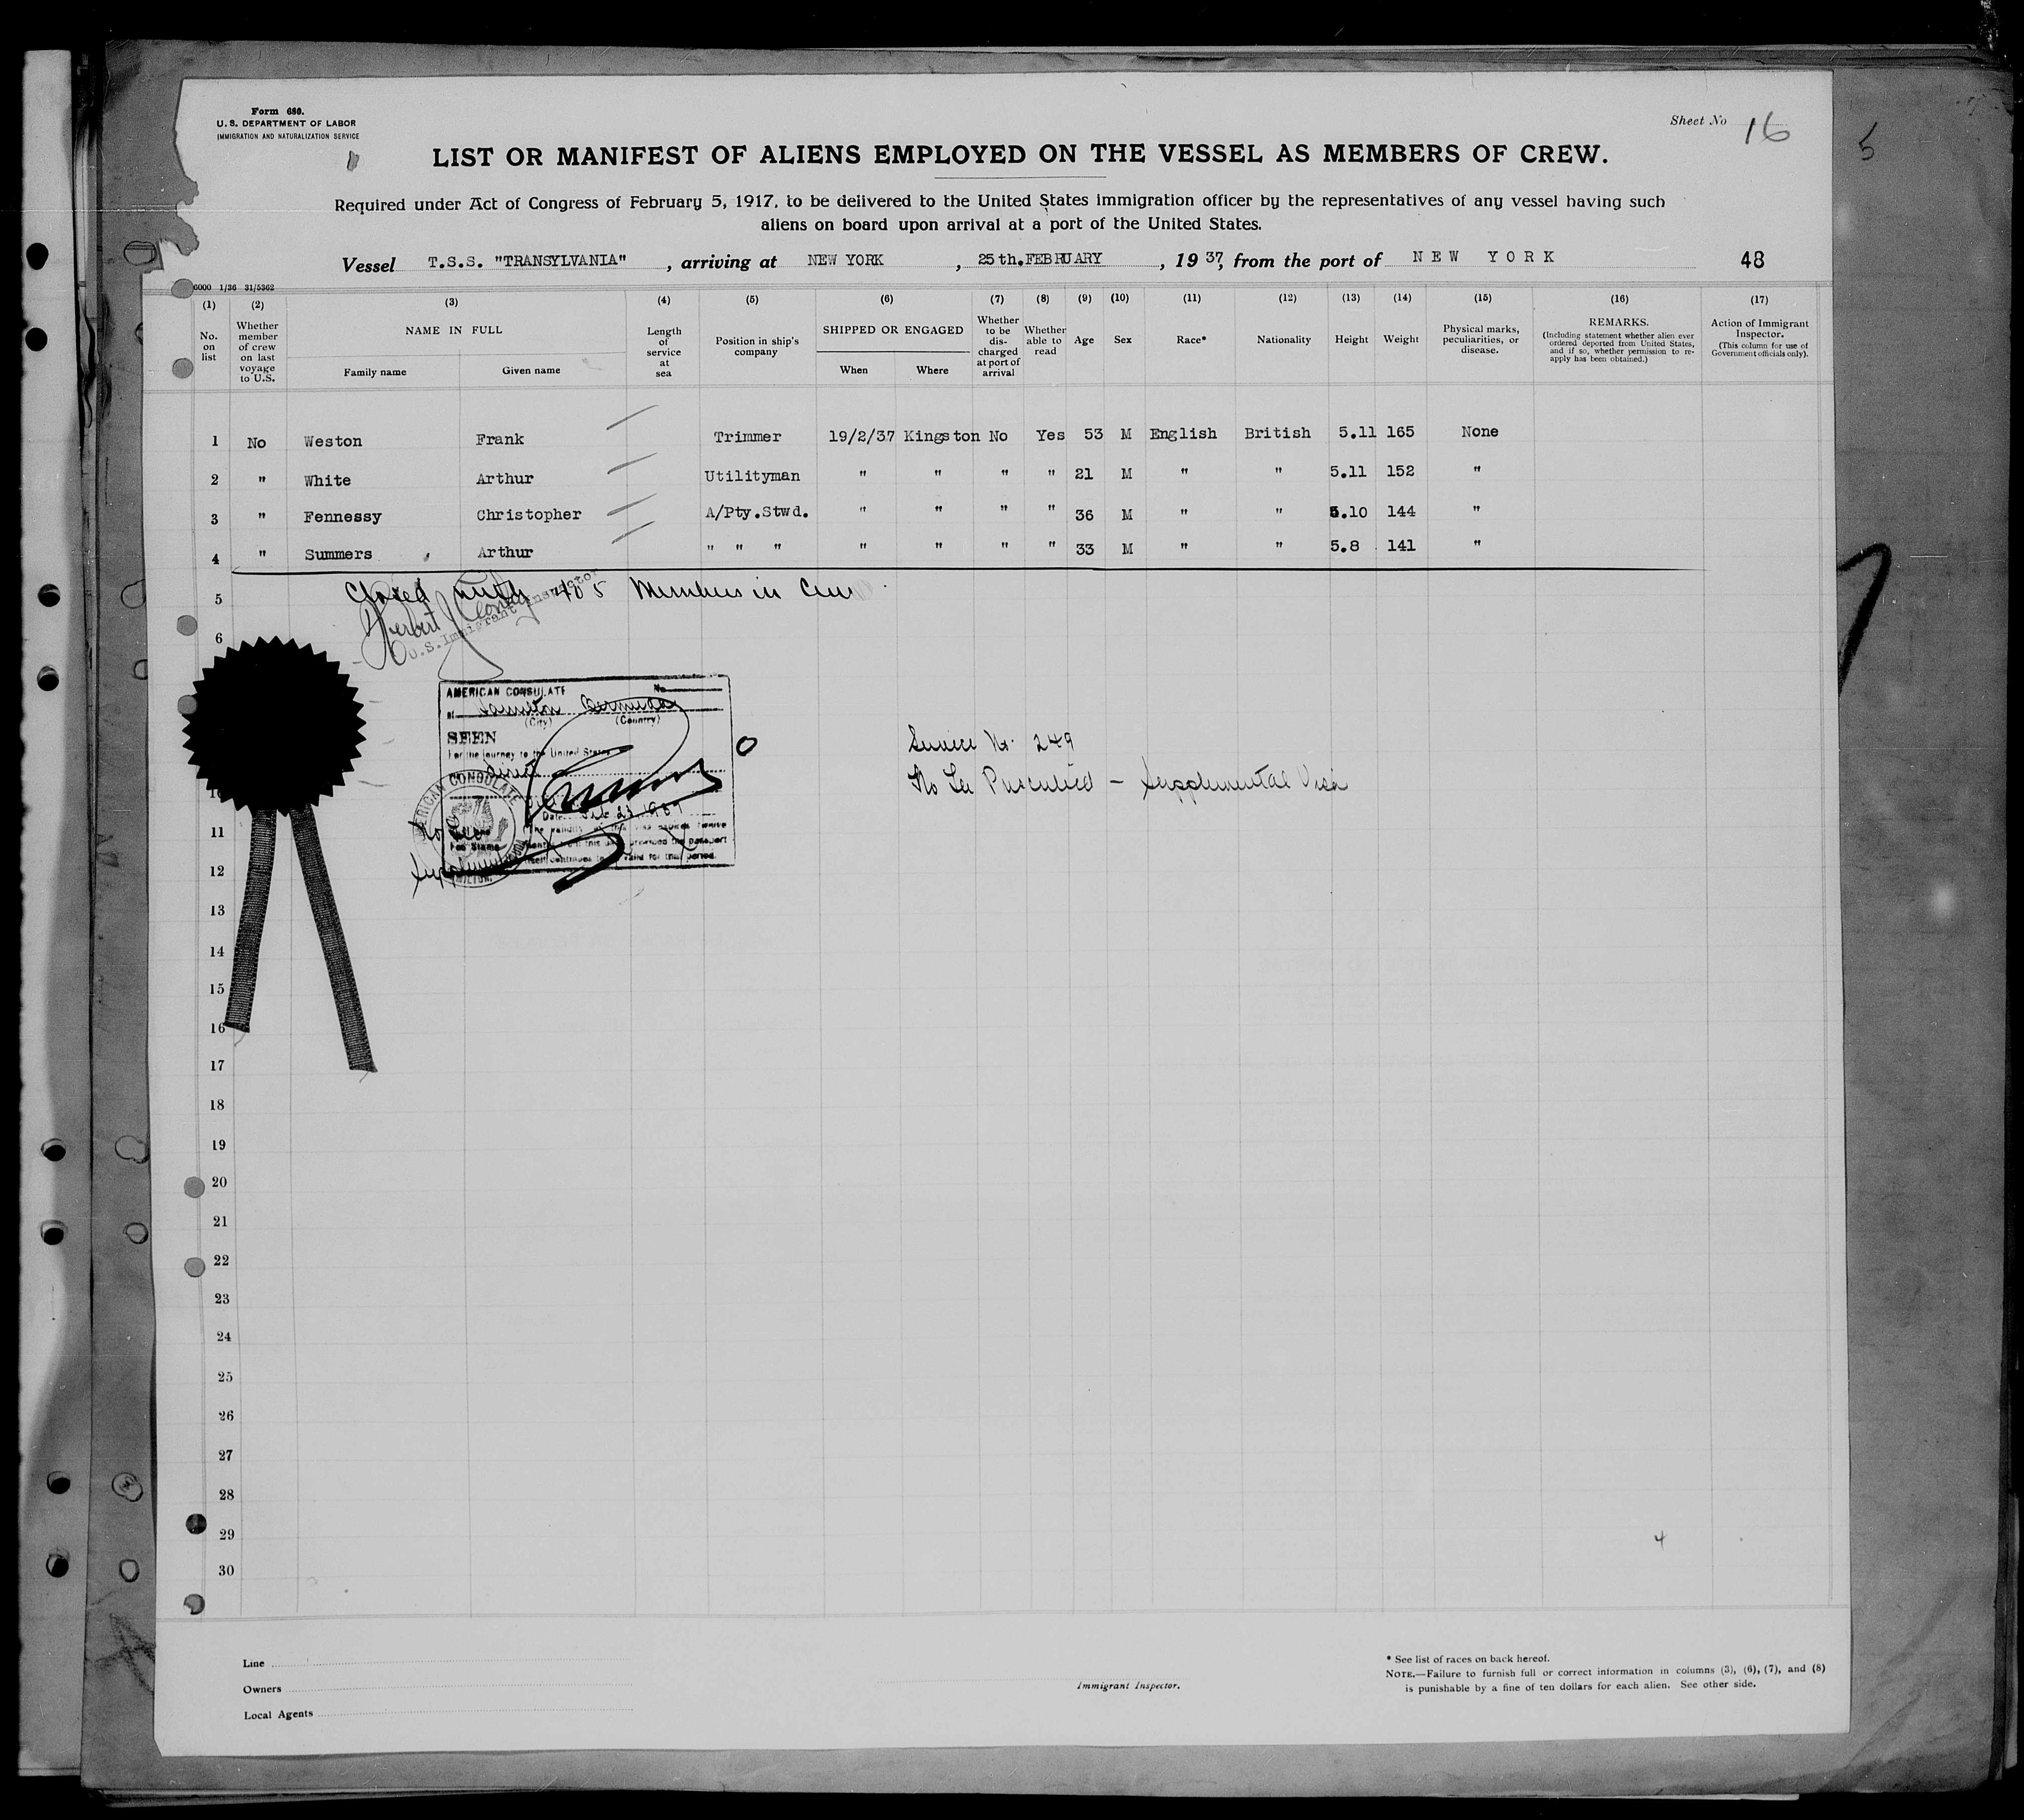 Form 680.
U. S. DEPARTMENT OF LABOR
IMMIGRATION AND NATURALIZATION SERVICE
Sheet No 16
5
LIST OR MANIFEST OF ALIENS EMPLOYED ON THE VESSEL AS MEMBERS OF CREW.
Required under Act of Congress of February 5, 1917, to be delivered to the United States immigration officer by the representatives of any vessel having such
aliens on board upon arrival at a port of the United States.
Vessel T.S.S. "TRANSYLVANIA" , arriving at NEW YORK , 25th.FEBRUARY , 19 37, from the port of NEW YORK 48
6000 1/36 31/5362
(1) (2) (3) (4) (5) (6) (7) (8) (9) (10) (11) (12) (13) (14) (15) (16) (17)
No. on list
Whether member of crew on last voyage to U.S.
NAME IN FULL
Family name
Given name
Length of service at sea
Position in ship's company
SHIPPED OR ENGAGED
When
Where
Whether to be discharged at port of arrival
Whether able to read
Age
Sex
Race*
Nationality
Height
Weight
Physical marks, peculiarities, or disease.
REMARKS.
(Including statement whether alien ever ordered deported from United States, and if so, whether permission to re-apply has been obtained.)
Action of Immigrant Inspector.
(This column for use of Government officials only).
1 No Weston Frank Trimmer 19/2/37 Kingston No Yes 53 M English British 5.11 165 None
2 " White Arthur Utilityman " " " " 21 M " " 5.11 152 "
3 " Fennessy Christopher A/Pty.Stwd. " " " " 36 M " " 5.10 144 "
4 " Summers Arthur " " " " " " " 33 M " " 5.8 141 "
5 Closed with 405 Members in Crew
6
U.S. Immigrant Inspector
AMERICAN CONSULATE No
at Hamilton Bermuda
(City) (Country)
SEEN
For the journey to the United States
direct
Date Feb 23 1937
No Fee
Fee Stamp
AMERICAN CONSULATE
Service No. 249
No Fee Prescribed - Supplemental Visa
11
12
13
14
15
16
17
18
19
20
21
22
23
24
25
26
27
28
29
30
4
Line
Owners
Local Agents
Immigrant Inspector.
* See list of races on back hereof.
NOTE.—Failure to furnish full or correct information in columns (3), (6), (7), and (8)
is punishable by a fine of ten dollars for each alien. See other side.